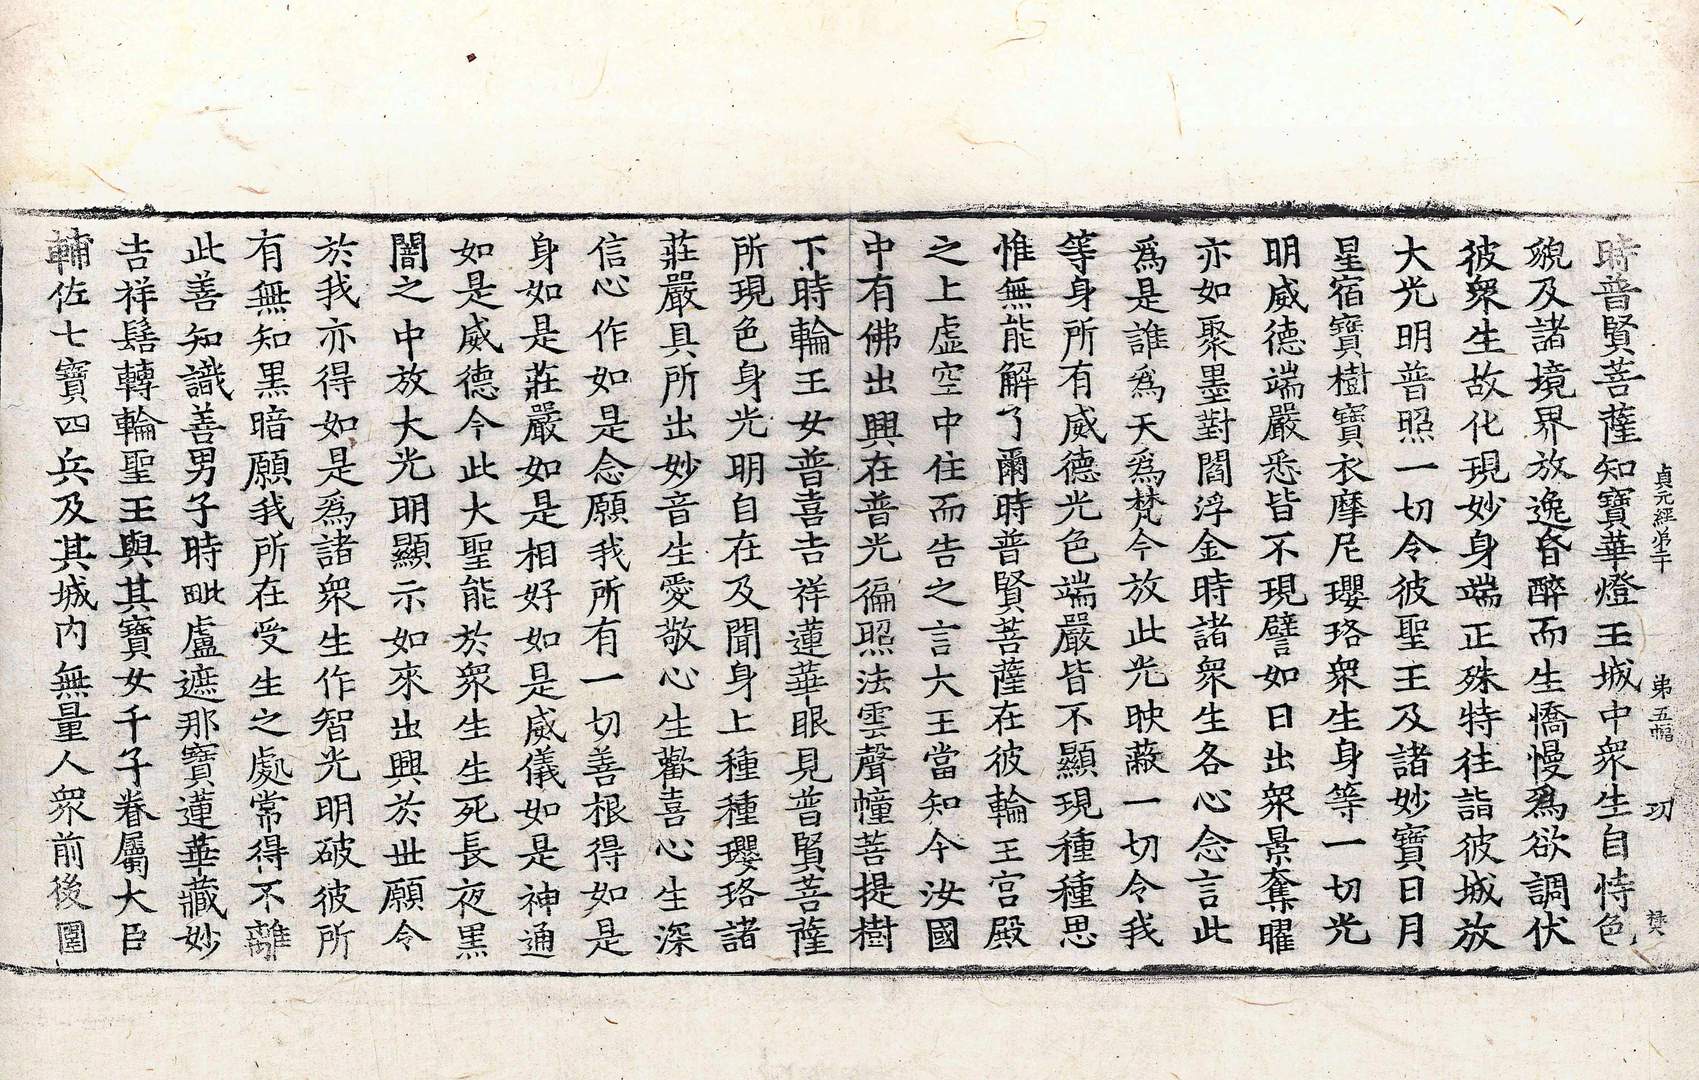 貞元經第二十 第五幅 功 樊
時普賢菩薩知寶華燈王城中衆生自恃色
貌及諸境界放逸昏醉而生憍慢爲欲調伏
彼衆生故化現妙身端正殊特往詣彼城放
大光明普照一切令彼聖王及諸妙寶日月
星宿寶樹寶衣摩尼瓔珞衆生身等一切光
明威德端嚴悉皆不現譬如日出衆景奪曜
亦如聚墨對閻浮金時諸衆生各心念言此
爲是誰爲天爲梵今放此光映蔽一切令我
等身所有威德光色端嚴皆不顯現種種思
惟無能解了爾時普賢菩薩在彼輪王宮殿
之上虛空中住而告之言大王當知今汝國
中有佛出興在普光徧照法雲聲幢菩提樹
下時輪王女普喜吉祥蓮華眼見普賢菩薩
所現色身光明自在及聞身上種種瓔珞諸
莊嚴具所出妙音生愛敬心生歡喜心生深
信心作如是念願我所有一切善根得如是
身如是莊嚴如是相好如是威儀如是神通
如是威德今此大聖能於衆生生死長夜黑
闇之中放大光明顯示如來出興於世願令
於我亦得如是爲諸衆生作智光明破彼所
有無知黑暗願我所在受生之處常得不離
此善知識善男子時毗盧遮那寶蓮華藏妙
吉祥髻轉輪聖王與其寶女千子眷屬大臣
輔佐七寶四兵及其城內無量人衆前後圍